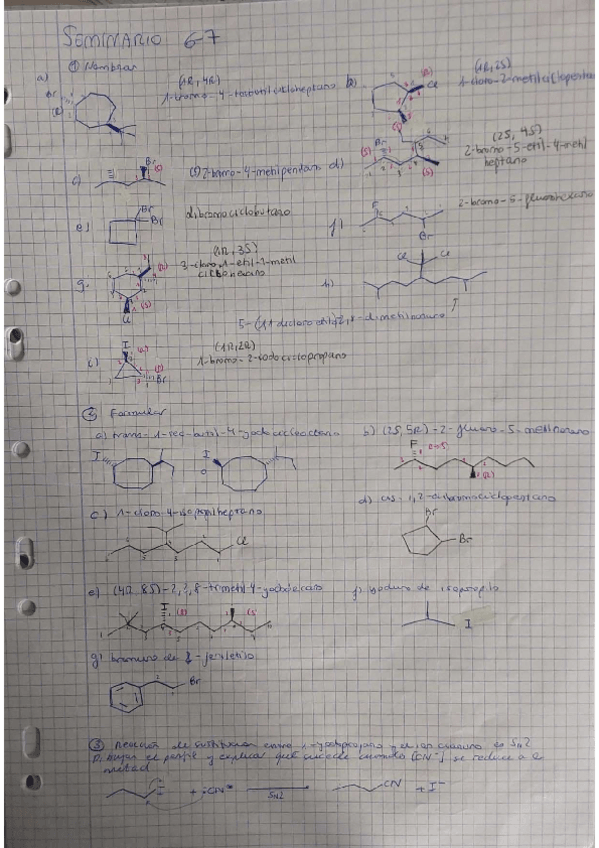 SEMINARIO 6-7
① Nombrar
a) (1R, 4R)
Br (R)
b) (1R, 2S)
1-cloro-2-metil
(R) Cl
(S)
c) Br (S)
(S) 2-bromo-4-metilpentano
d) (2S, 4S)
2-bromo-5-etil-4-metil
heptano
(S) Br
(S)
e) Br
Br
dibromociclobutano
f) 2-bromo-5-fluorohexano
F
Br
g) (1R, 3S)
3-cloro-1-etil-1-metil
ciclohexano
(R)
(S)
Cl
h) Cl Cl
i) (1R, 2R)
1-bromo-2-iodociclopropano
I
Br
② Formular
a) trans-1-sec-butil-4-yodociclooctano
b) (2S, 5R)-2-fluoro-5-metilnonano
I o I
F
(R)
c) 1-cloro-4-isopropilheptano
d) cis-1,2-dibromociclopentano
Cl
Br
Br
e) (4R, 8S)-2,2,8-trimetil-4-yododecano
f) yoduro de isopropilo
I
I
g) bromuro de
Br
③ Reacción de sustitución entre 1-yodopropano y el ion cianuro es SN2
Dibujar el perfil y explicar qué sucede cuando [CN⁻] se reduce a la
mitad
I + :CN⁻ SN2 CN + I⁻